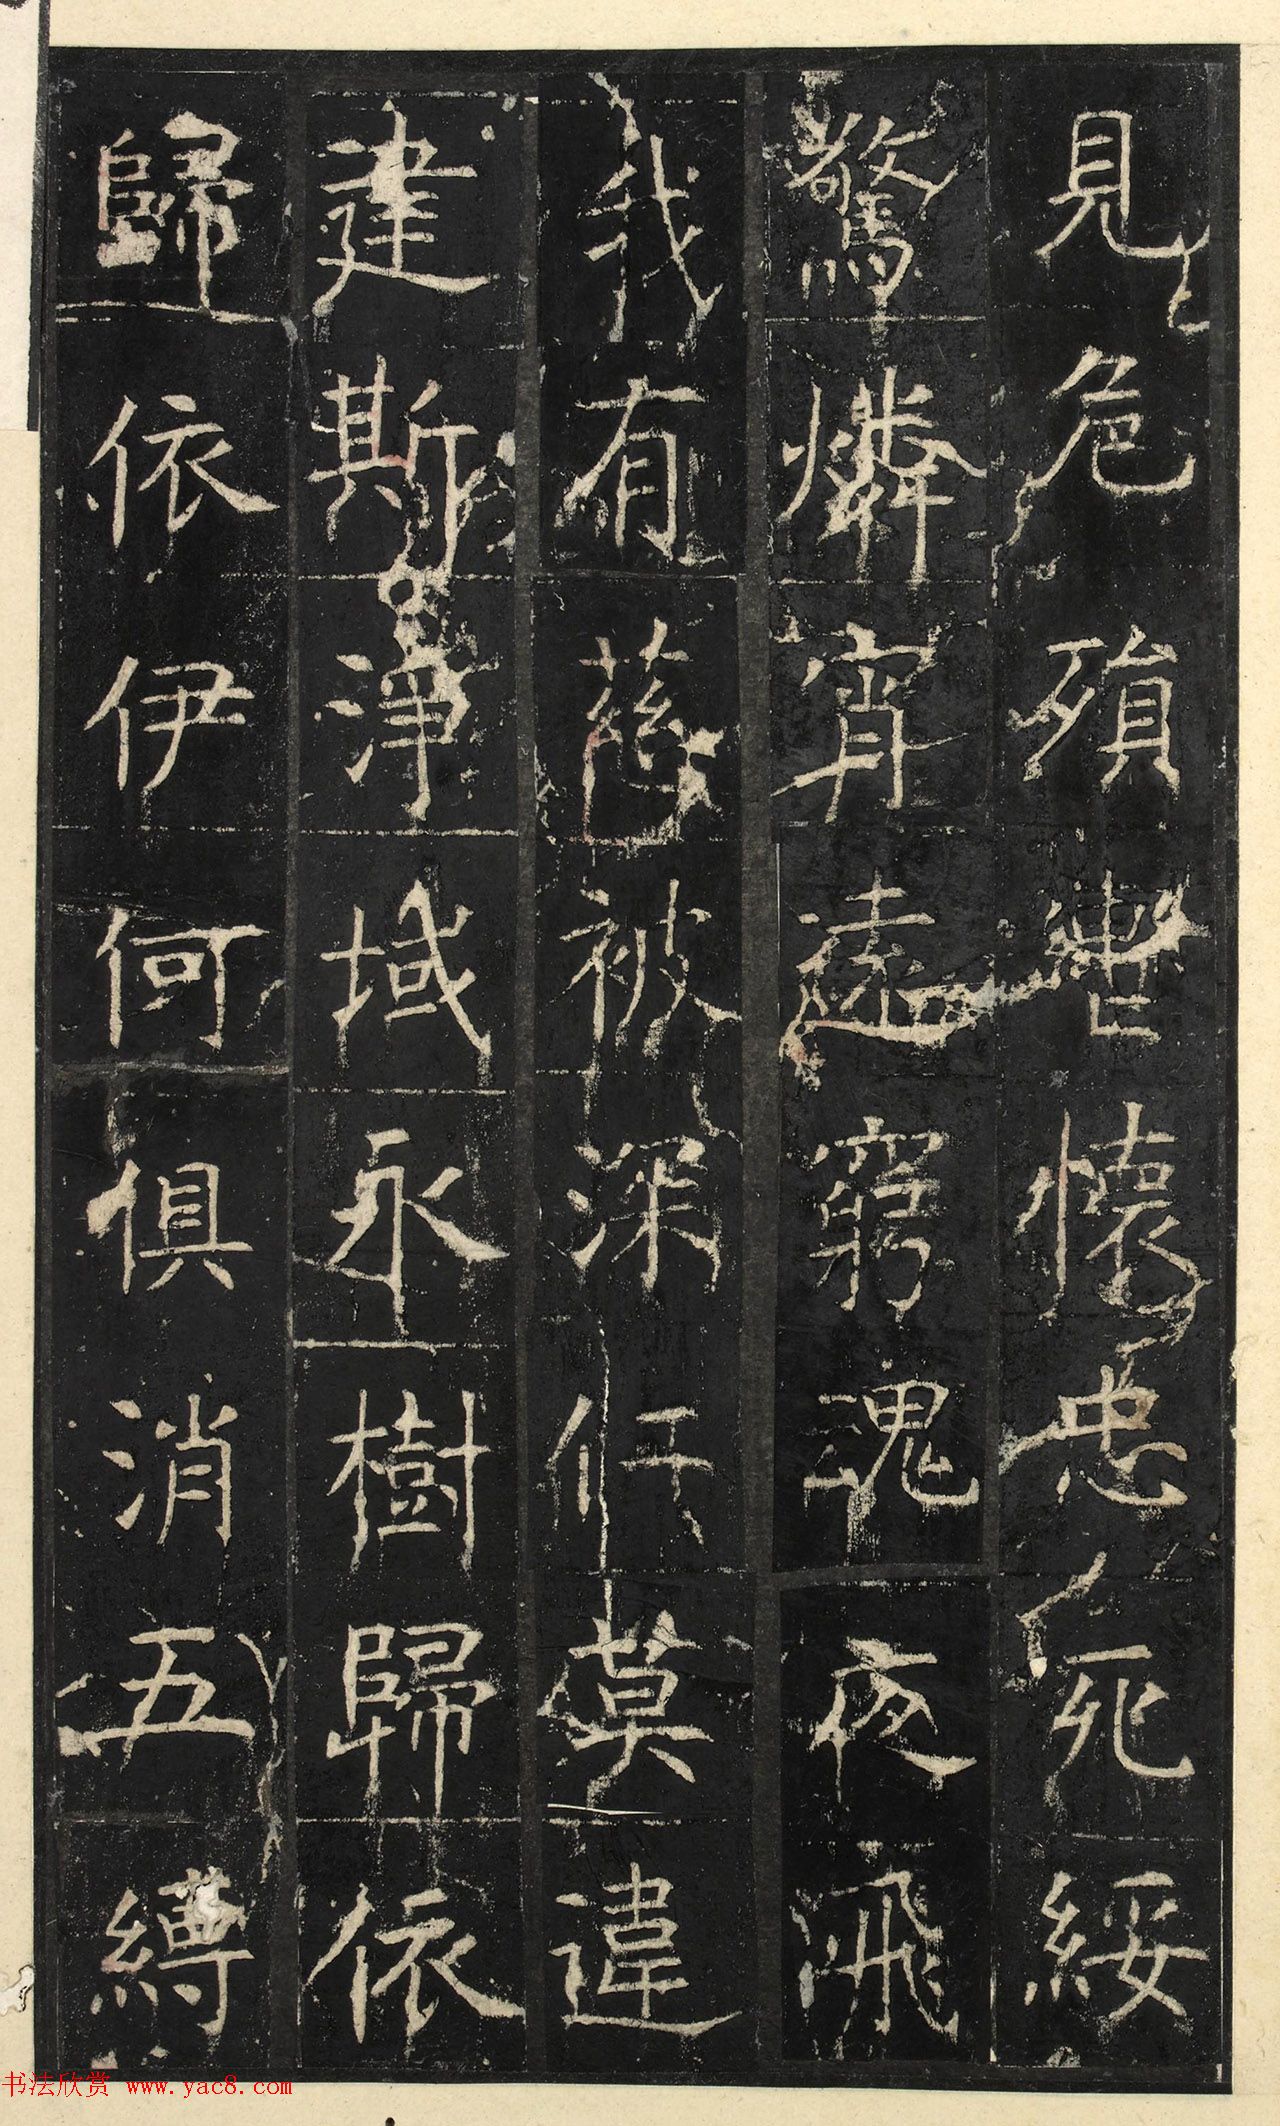 見危殞轡懷忠死綏
驚燐宵遠窮魂夜飛
我有慈被深仁莫違
建斯淨域永樹歸依
歸依伊何俱消五縛
书法欣赏 www.yac8.com